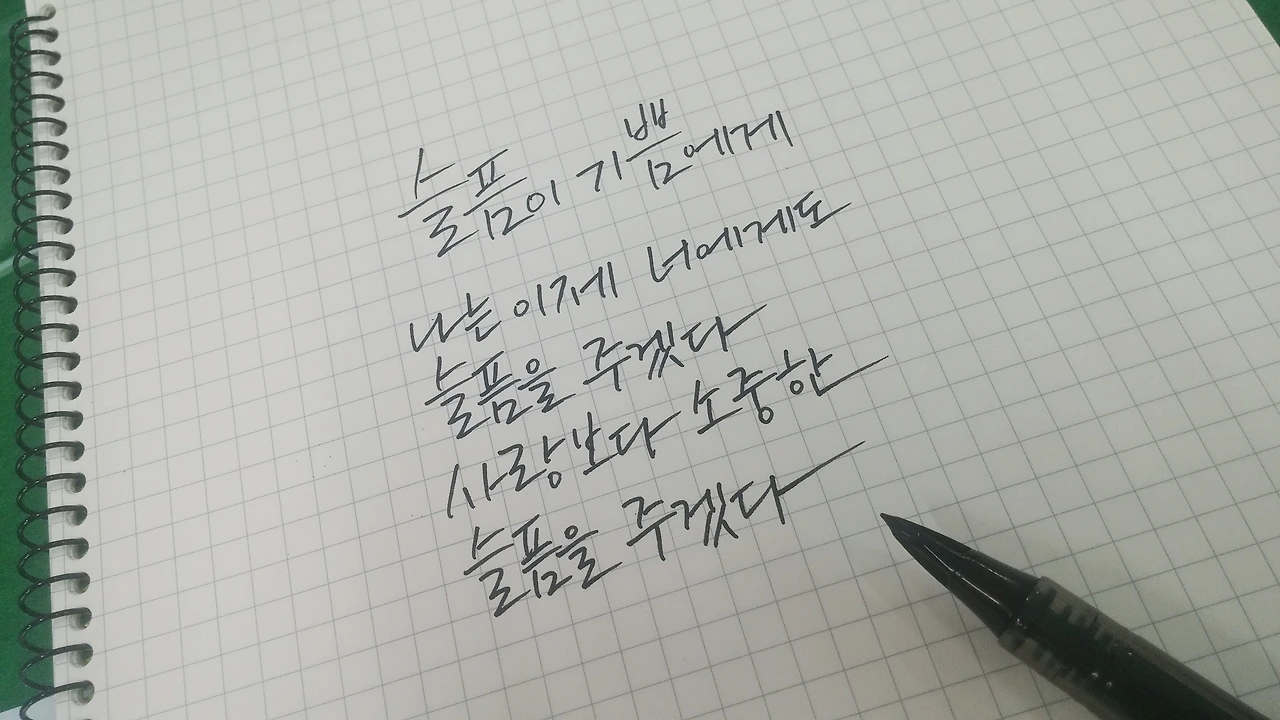 슬픔이 기쁨에게
나는 이제 너에게도
슬픔을 주겠다
사랑보다 소중한
슬픔을 주겠다